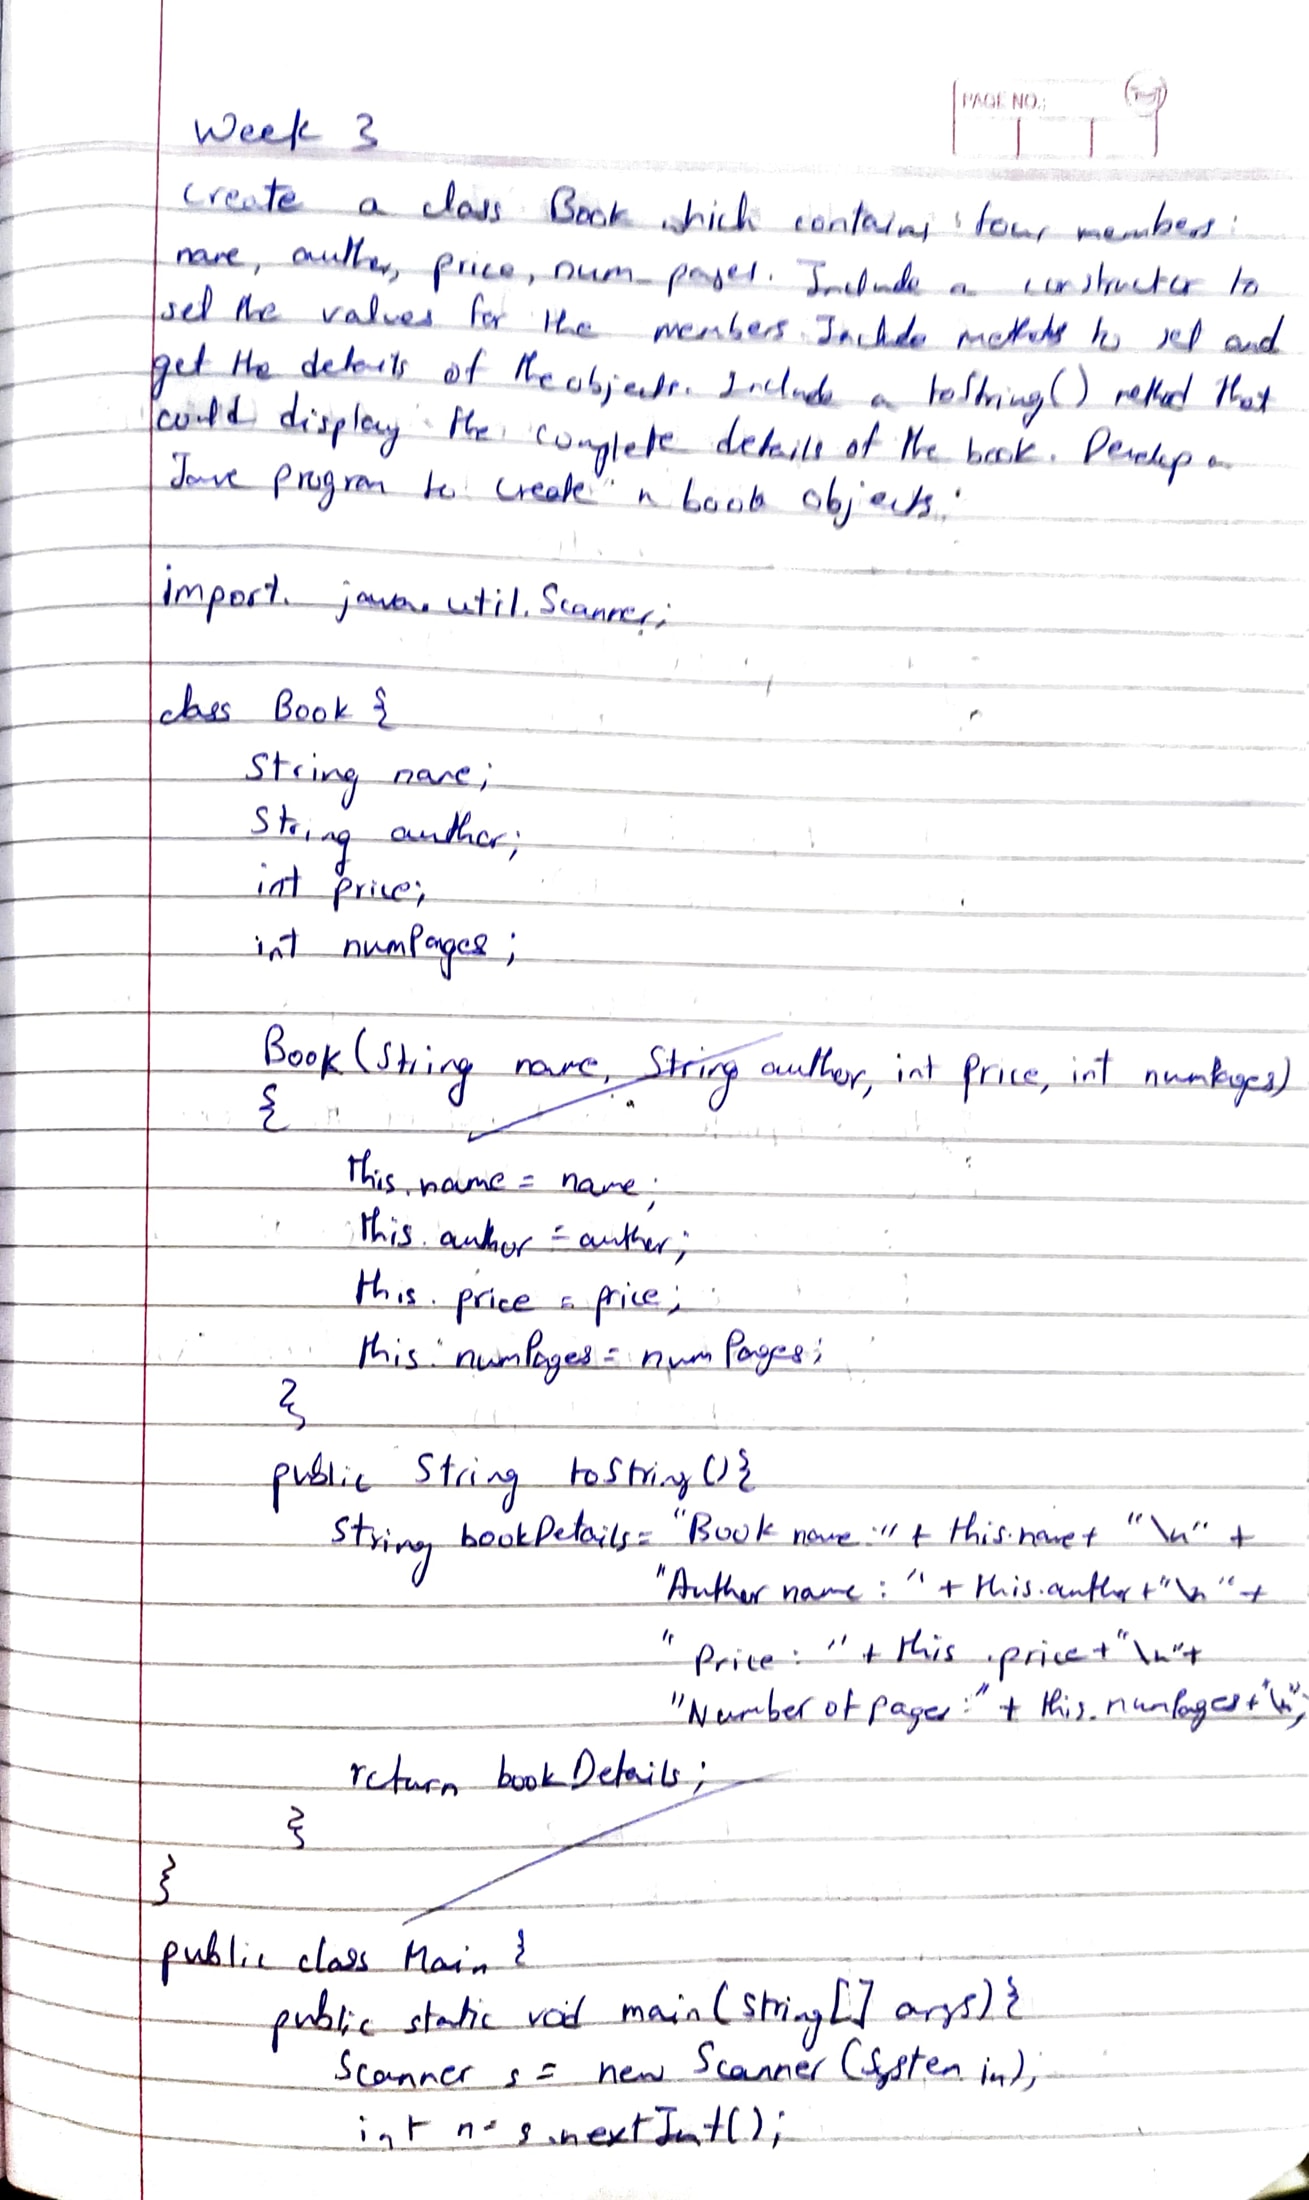 PAGE NO.:
Week 3
Create a class Book which contains four members:
name, author, price, num_pages. Include a constructor to
set the values for the members. Include methods to set and
get the details of the objects. Include a toString() method that
could display the complete details of the book. Develop a
Java program to create n book objects.
import java.util.Scanner;
class Book {
String name;
String author;
int price;
int numPages;
Book (String name, String author, int price, int numPages)
{
this.name = name;
this.author = author;
this.price = price;
this.numPages = numPages;
}
public String toString() {
String bookDetails = "Book name:" + this.name + "\n" +
"Author name: " + this.author + "\n" +
"Price: " + this.price + "\n" +
"Number of pages:" + this.numPages + "\n";
return bookDetails;
}
}
public class Main {
public static void main(String[] args) {
Scanner s = new Scanner(System.in);
int n = s.nextInt();